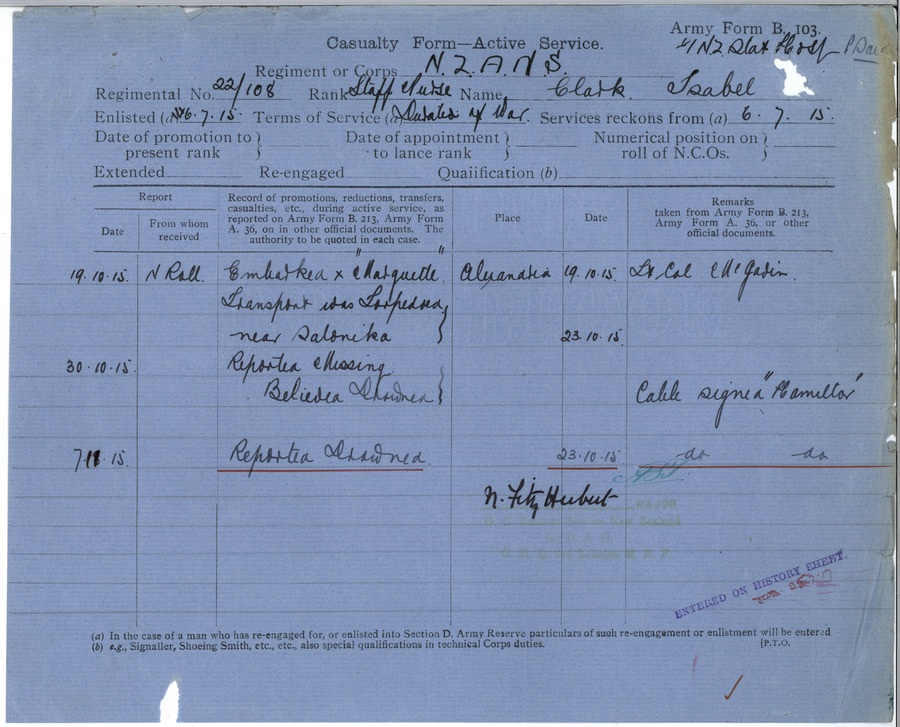 Army Form B. 103.
Casualty Form—Active Service.
1 N.Z. Stat Hosp
Regiment or Corps N.Z.A.N.S.
Regimental No. 22/108 Rank Staff Nurse Name Clark Isabel
Enlisted (a) 6.7.15 Terms of Service (a) Duration of War. Services reckons from (a) 6.7.15.
Date of promotion to present rank } Date of appointment to lance rank } Numerical position on roll of N.C.Os. }
Extended Re-engaged Qualification (b)
Report
Date
From whom received
Record of promotions, reductions, transfers, casualties, etc., during active service, as reported on Army Form B. 213, Army Form A. 36, on in other official documents. The authority to be quoted in each case.
Place
Date
Remarks taken from Army Form B. 213, Army Form A. 36, or other official documents.
19.10.15. N Roll. Embarked x "Marquette" Alexandria 19.10.15. Lt Col McGavin.
Transport was Torpedoed }
near Salonika } 23.10.15.
30.10.15. Reported Missing. }
Believed Drowned } Cable signed "Hamilton"
7.11.15. Reported Drowned 23.10.15 do do
N. FitzHerbert
MAJOR
ENTERED ON HISTORY SHEET.
(a) In the case of a man who has re-engaged for, or enlisted into Section D. Army Reserve particulars of such re-engagement or enlistment will be entered
(b) e.g., Signaller, Shoeing Smith, etc., etc., also special qualifications in technical Corps duties. [P.T.O.